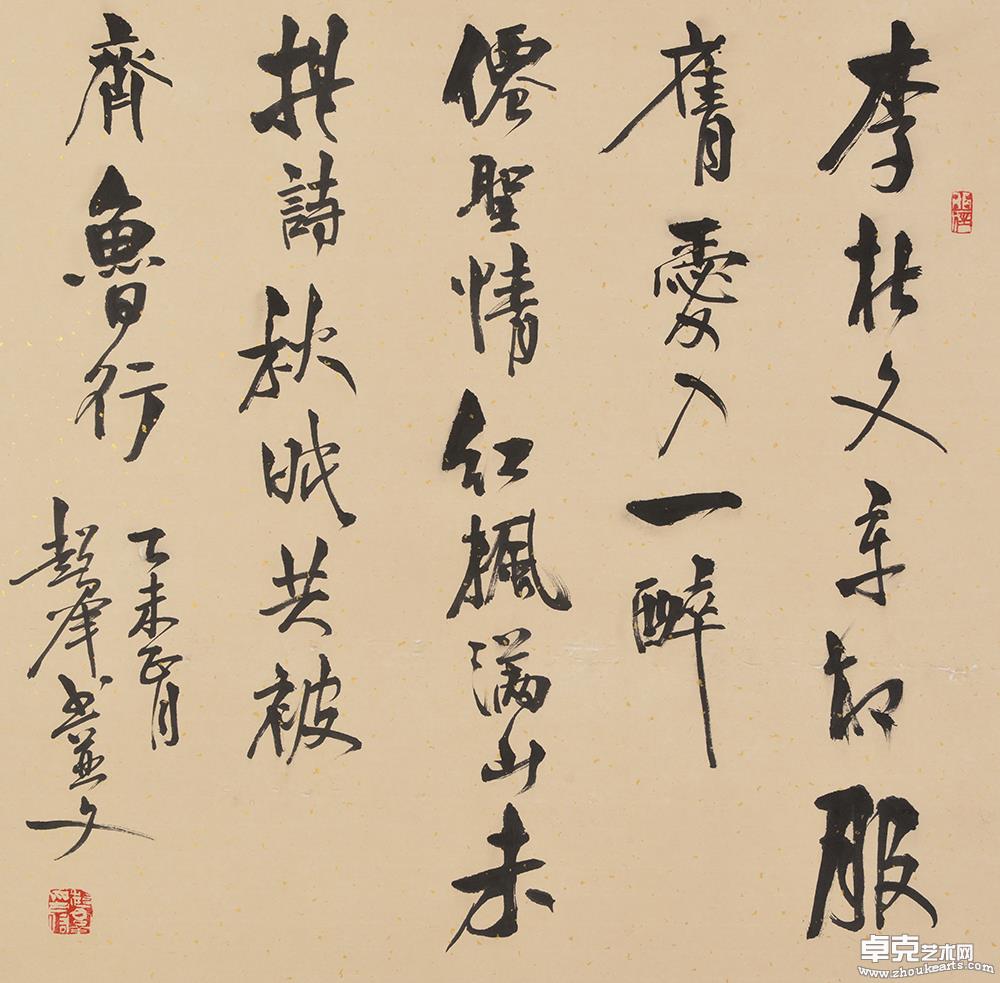 李杜文章服
膺愛入一醉
僊聖情红楓满山未
詩秋眠共被
齊魯行
乙未正月
書並文
卓克艺术网
www.zhoukearts.com